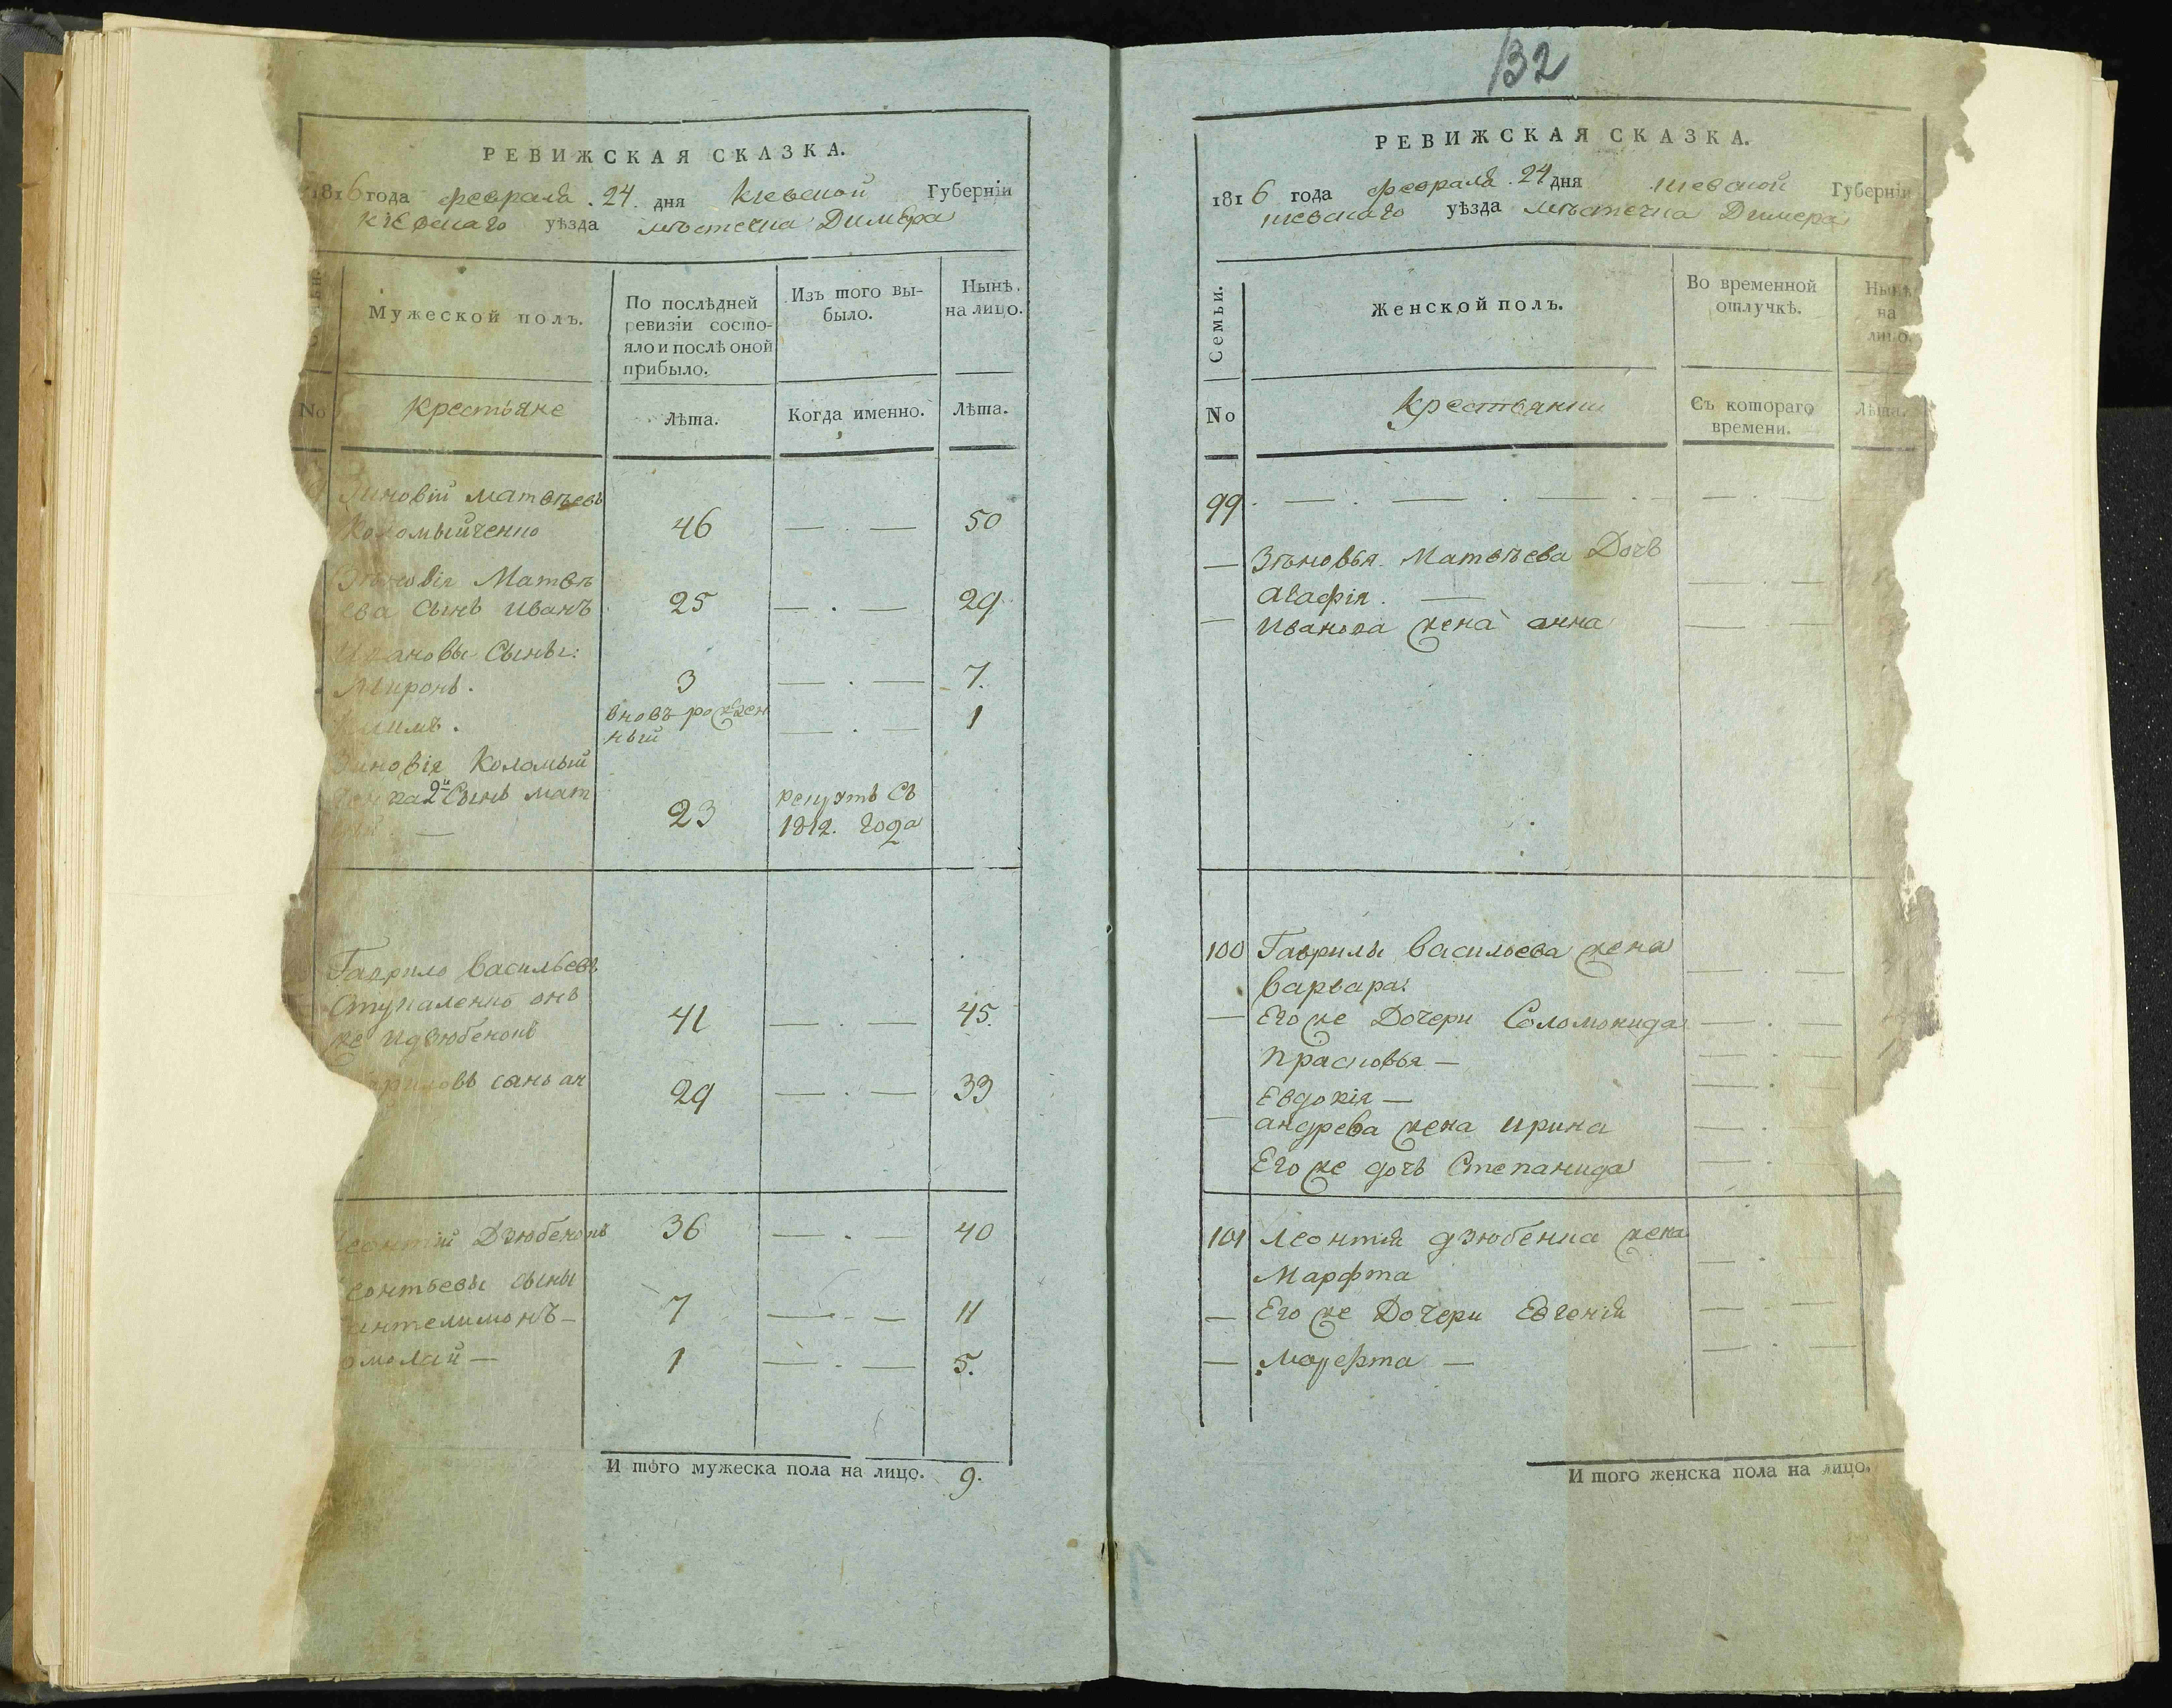 РЕВИЖСКАЯ СКАЗКА.
1816 года февраля . 24. дня Кіевской Губерніи
Кіевскаго уѣзда мѣстечка Димера
Мужеской полъ.
По послѣдней
ревизіи состо-
яло и послѣ оной
прибыло.
Изъ того вы-
было.
Нынѣ.
на лицо.
No
Крестьяне
Лѣта.
Когда именно.
Лѣта.
Зиновій Матвѣевъ
Коломыйченко 46 — . — 50
Зѣновія Матвѣ
ева Сынъ Иванъ 25 — . — 29
Ивановы Сыны:
Миронъ. 3 — . — 7.
вновь рожден
ный — . — 1
Зиновія Коломый
ченка 2й Сынъ Мат
вѣй. — 23
рекрутъ Съ
1812. года
Гаврило Васильевъ
Ступаленко онъ
же Идзюбенокъ 41 — . — 45.
сынъ ан 29 — . — 33
Леонтій Дзюбенокъ 36 — . — 40
Леонтьевы сыны
Пантелимонъ — 7 — . — 11
1 — . — 5.
И того мужеска пола на лицо. 9.
132
РЕВИЖСКАЯ СКАЗКА.
1816 года февраля . 24 дня Кіевской Губерніи
Кіевскаго уѣзда мѣстечка Димера
Семьи.
Женской полъ.
Во временной
отлучкѣ.
Нынѣ
на
лицо.
No
Крестьянки
Съ котораго
времени.
Лѣта.
99 . — . — . — . — . —
— Зѣновья Матвѣева Дочь
Агафія . — — . —
— Иванова жена анна — . —
100 Гаврилы Васильева жена
Варвара: — . —
— Его же Дочери Соломонида — . —
Прасковья — — . —
Евдокія — — . —
— андрева жена Ирина — . —
Его же дочь Степанида — . —
101 Леонтія дзюбенка жена
Марфта — .
— Его же Дочери Евгенія — . —
— Марфта — — . —
И того женска пола на лицо.